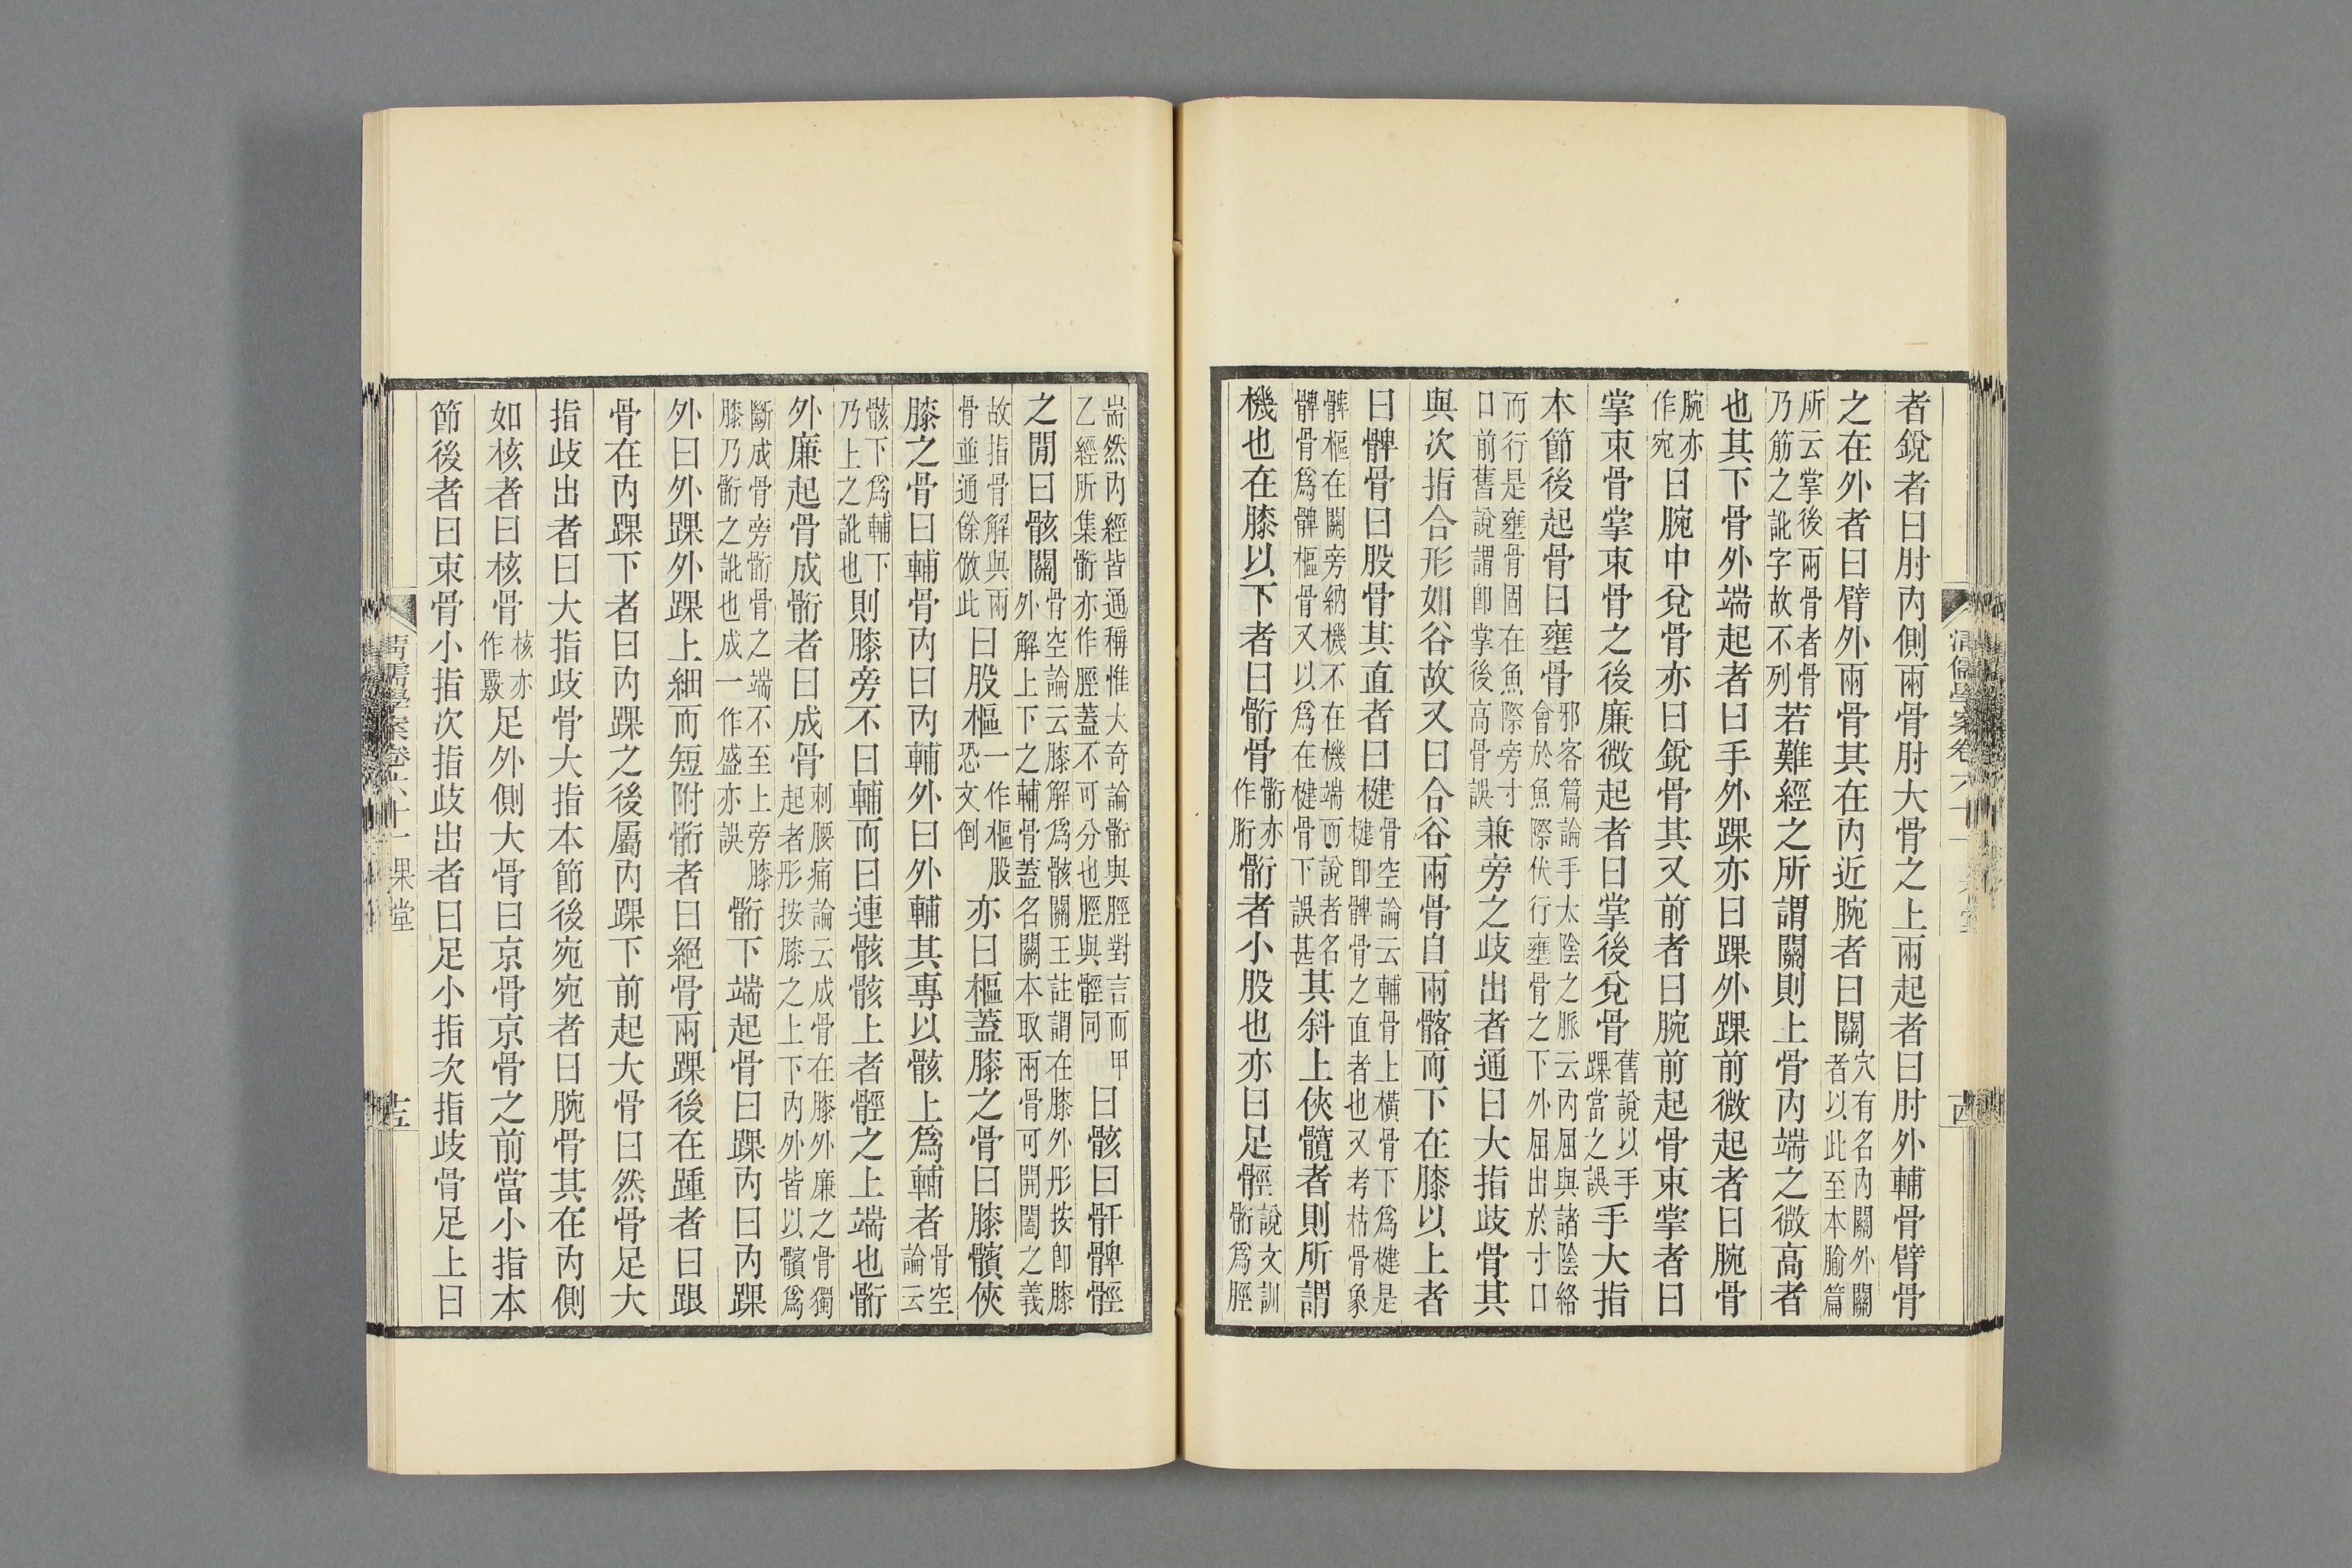 者銳者曰肘內側兩骨肘大骨之上兩起者曰肘外輔骨臂骨
之在外者曰臂外兩骨其在內近腕者曰關穴有名內關外關者以此至本腧篇
所云掌後兩骨者骨乃筋之訛字故不列若難經之所謂關則上骨內端之微高者
也其下骨外端起者曰手外踝亦曰踝外踝前微起者曰腕骨
腕亦作宛曰腕中兌骨亦曰銳骨其又前者曰腕前起骨束掌者曰
掌束骨掌束骨之後廉微起者曰掌後兌骨舊說以手踝當之誤手大指
本節後起骨曰壅骨邪客篇論手太陰之脈云內屈與諸陰絡會於魚際伏行壅骨之下外屈出於寸口
而行是壅骨固在魚際旁寸口前舊說謂卽掌後高骨誤兼旁之歧出者通曰大指歧骨其
與次指合形如谷故又曰合谷兩骨自兩髂而下在膝以上者
曰髀骨曰股骨其直者曰楗骨空論云輔骨上橫骨下爲楗是楗卽髀骨之直者也又考枯骨象
髀樞在關旁納機不在機端而說者名髀骨爲髀樞骨又以爲在楗骨下誤甚其斜上俠髖者則所謂
機也在膝以下者曰䯒骨䯒亦作胻䯒者小股也亦曰足脛說文訓䯒爲脛
耑然內經皆通稱惟大奇論䯒與脛對言而甲乙經所集䯒亦作脛蓋不可分也脛與踁同曰骸曰骭髀脛
之閒曰骸關骨空論云膝解爲骸關王註謂在膝外形按卽膝外解上下之輔骨蓋名關本取兩骨可開闔之義
故指骨解與兩骨並通餘倣此曰股樞一作樞股恐文倒亦曰樞蓋膝之骨曰膝髕俠
膝之骨曰輔骨內曰內輔外曰外輔其專以骸上爲輔者骨空論云
骸下爲輔下乃上之訛也則膝旁不曰輔而曰連骸骸上者脛之上端也䯒
外廉起骨成䯒者曰成骨刺腰痛論云成骨在膝外廉之骨獨起者形按膝之上下內外皆以髕爲
斷成骨旁䯒骨之端不至上旁膝膝乃䯒之訛也成一作盛亦誤䯒下端起骨曰踝內曰內踝
外曰外踝外踝上細而短附䯒者曰絕骨兩踝後在踵者曰跟
骨在內踝下者曰內踝之後屬內踝下前起大骨曰然骨足大
指歧出者曰大指歧骨大指本節後宛宛者曰腕骨其在內側
如核者曰核骨核亦作覈足外側大骨曰京骨京骨之前當小指本
節後者曰束骨小指次指歧出者曰足小指次指歧骨足上曰
清儒學案卷六十一